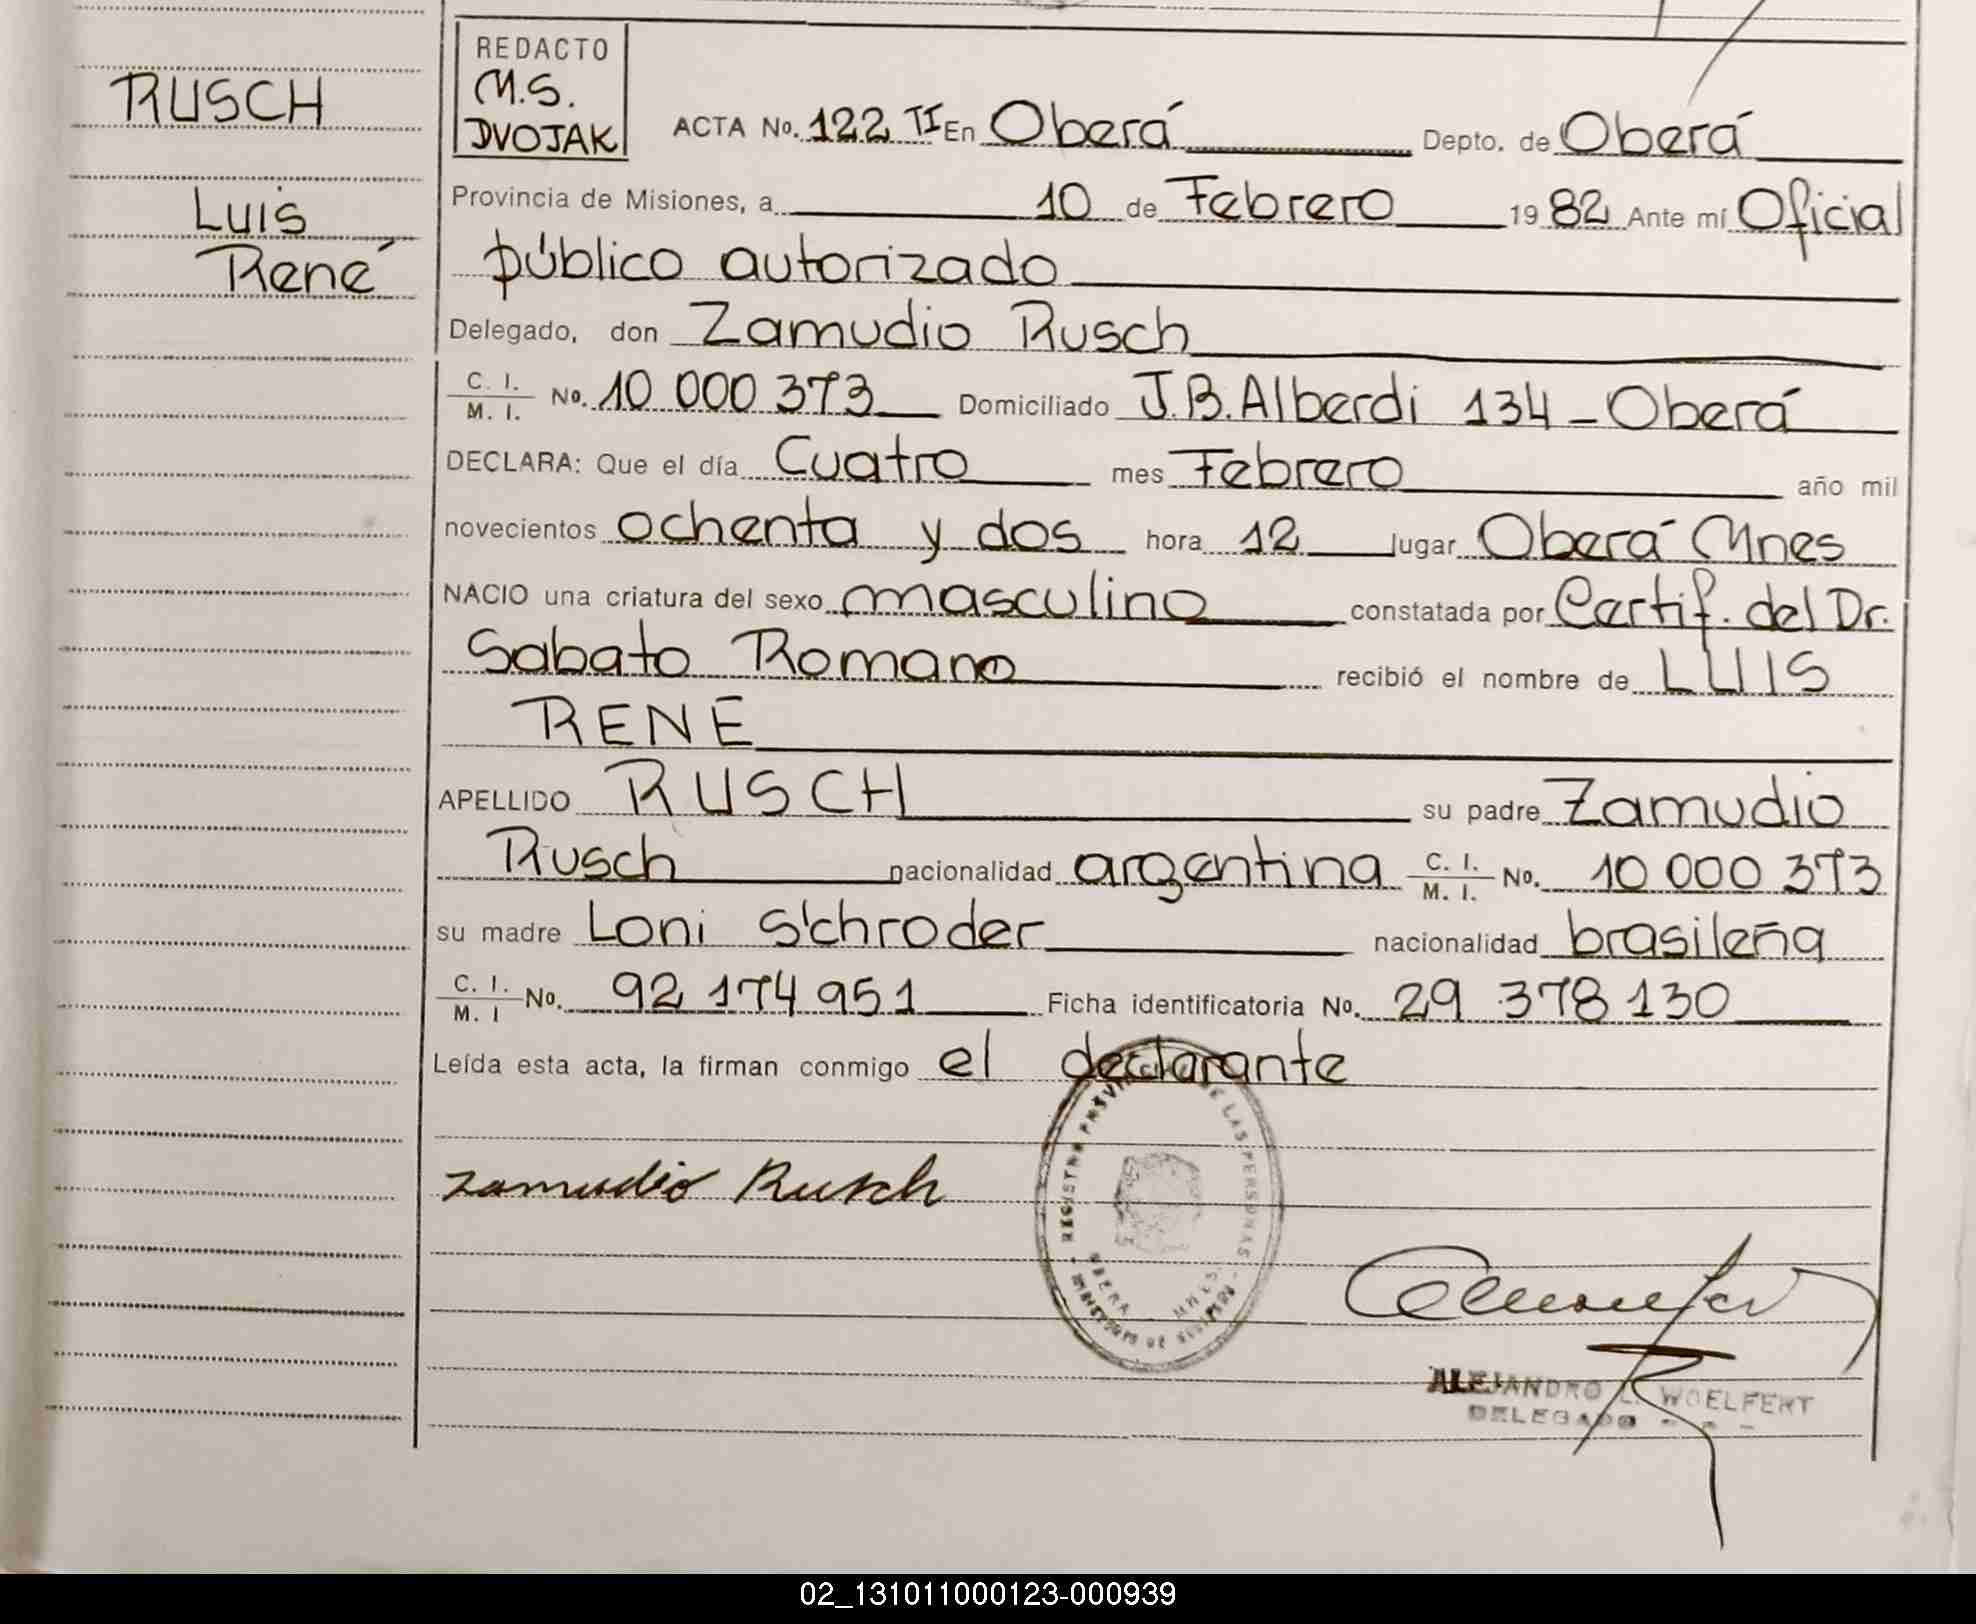 RUSCH
Luis
René
REDACTO
M.S.
DVOJAK
ACTA No. 122 TI En Oberá Depto. de Oberá
Provincia de Misiones, a 10 de Febrero 1982 Ante mí Oficial
público autorizado
Delegado, don Zamudio Rusch
C. I. / M. I. No. 10 000 373 Domiciliado J.B. Alberdi 134 - Oberá
DECLARA: Que el día Cuatro mes Febrero año mil
novecientos ochenta y dos hora 12 lugar Oberá Mnes
NACIO una criatura del sexo masculino constatada por Certif. del Dr.
Sabato Romano recibió el nombre de LUIS
RENE
APELLIDO RUSCH su padre Zamudio
Rusch nacionalidad argentina C. I. / M. I. No. 10 000 373
su madre Loni Schroder nacionalidad brasileña
C. I. / M. I No. 92 174 951 Ficha identificatoria No. 29 378 130
Leída esta acta, la firman conmigo el declarante
Zamudio Rusch
DE LAS PERSONAS
OBERA MNES.
ALEJANDRO L. WOELFERT
DELEGADO
02_131011000123-000939